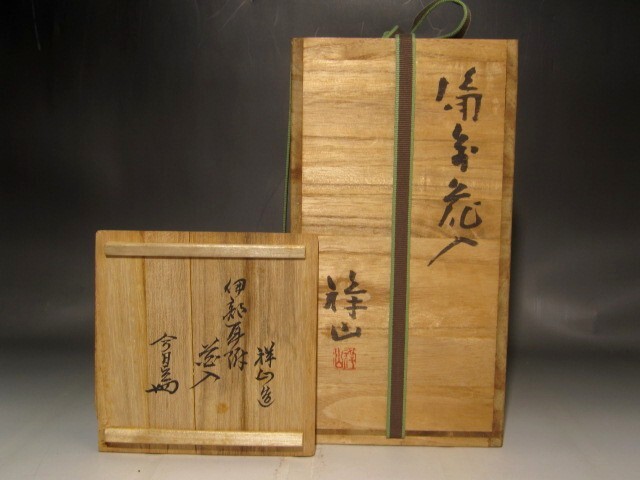 備前花入
祥山
祥山造
伊部耳附
花入
今日庵